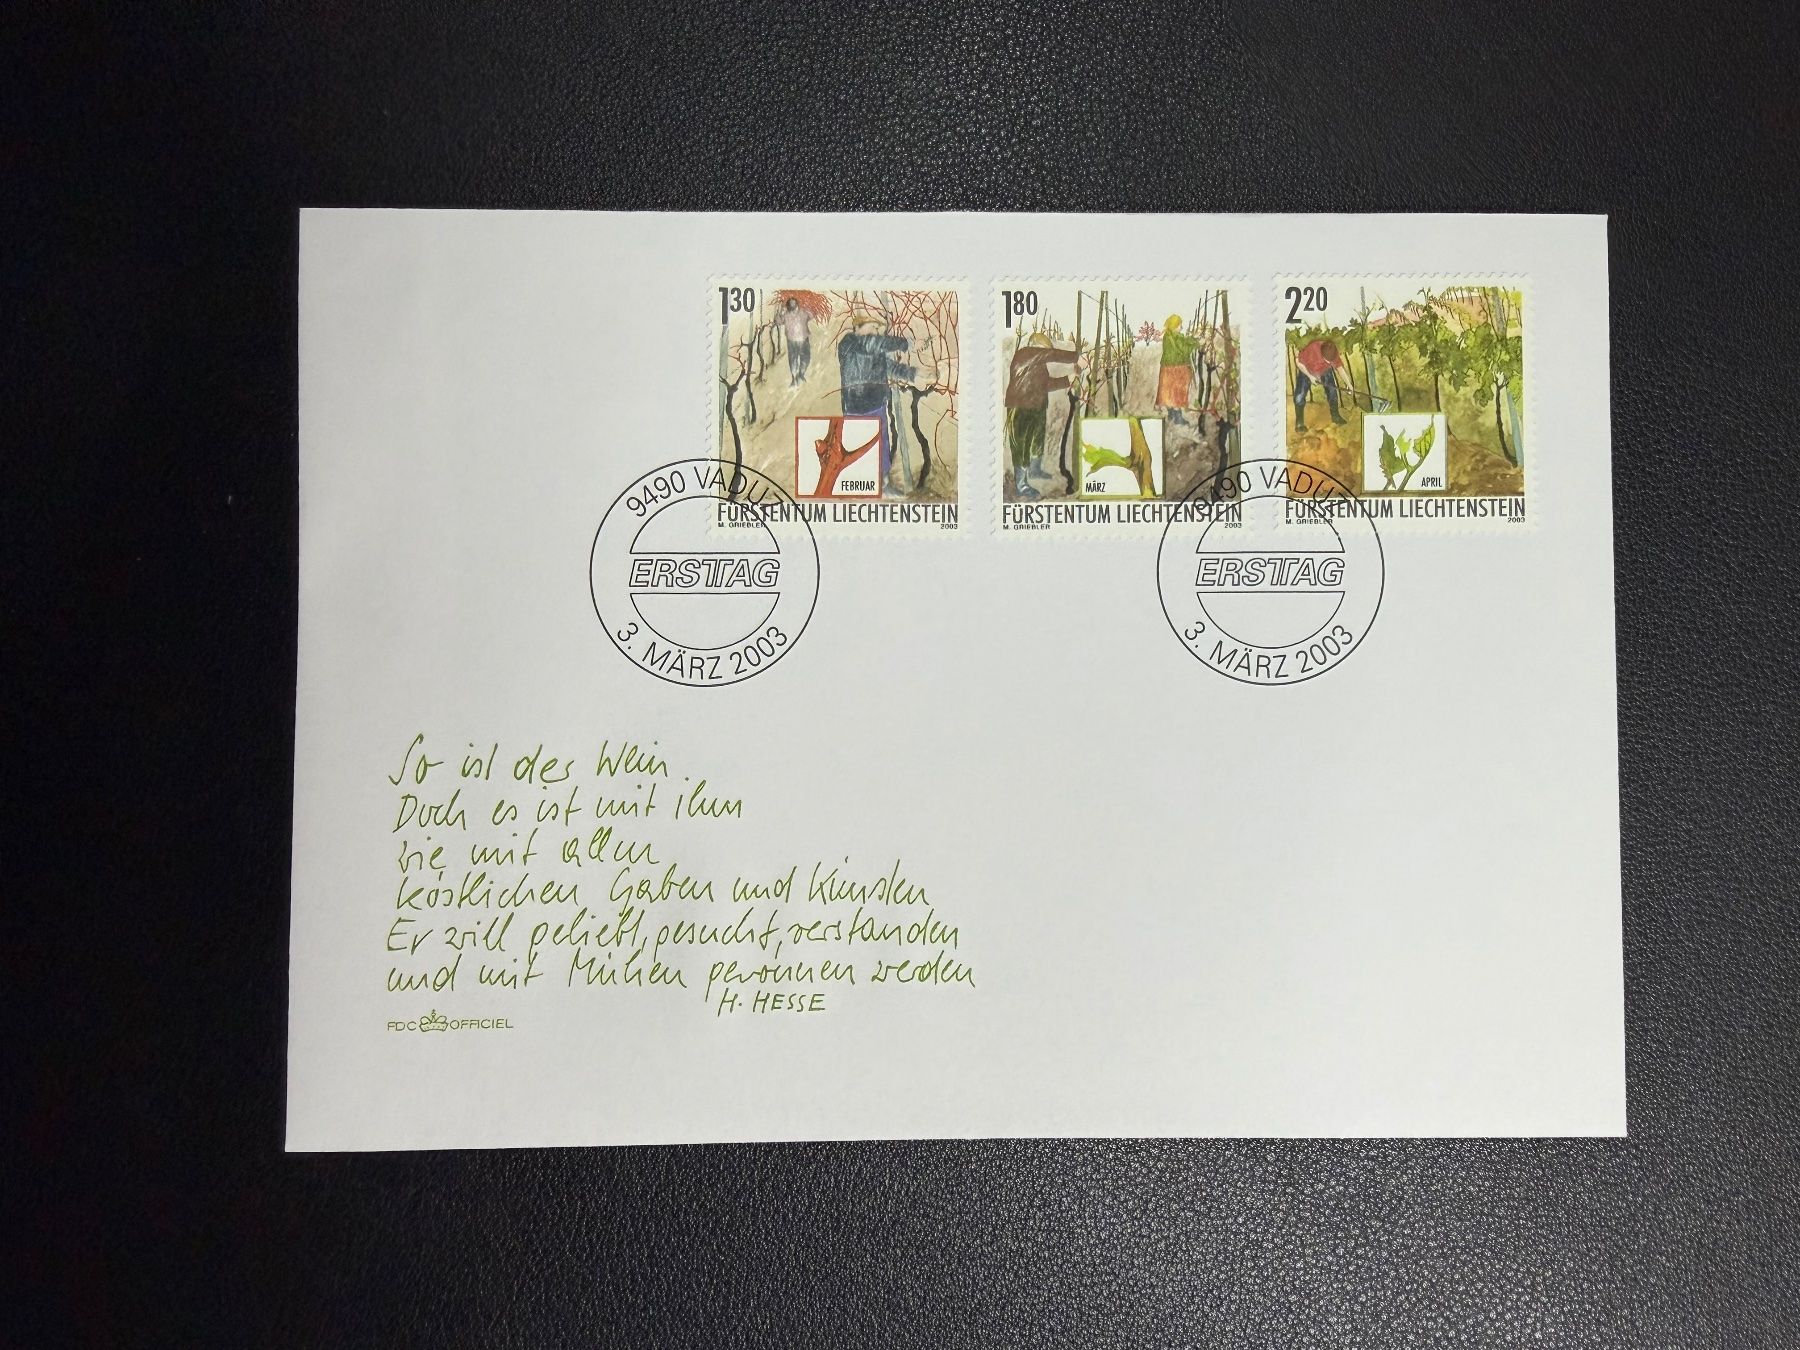 130
FEBRUAR
FÜRSTENTUM LIECHTENSTEIN
M. GRIEBLER 2003
180
MÄRZ
FÜRSTENTUM LIECHTENSTEIN
M. GRIEBLER 2003
220
APRIL
FÜRSTENTUM LIECHTENSTEIN
M. GRIEBLER 2003
9490 VADUZ
ERSTTAG
3. MÄRZ 2003
9490 VADUZ
ERSTTAG
3. MÄRZ 2003
So ist der Wein.
Doch es ist mit ihm
wie mit allen
köstlichen Gaben und Künsten
Er will geliebt, gesucht, verstanden
und mit Mühen gewonnen werden
H. HESSE
FDC OFFICIEL